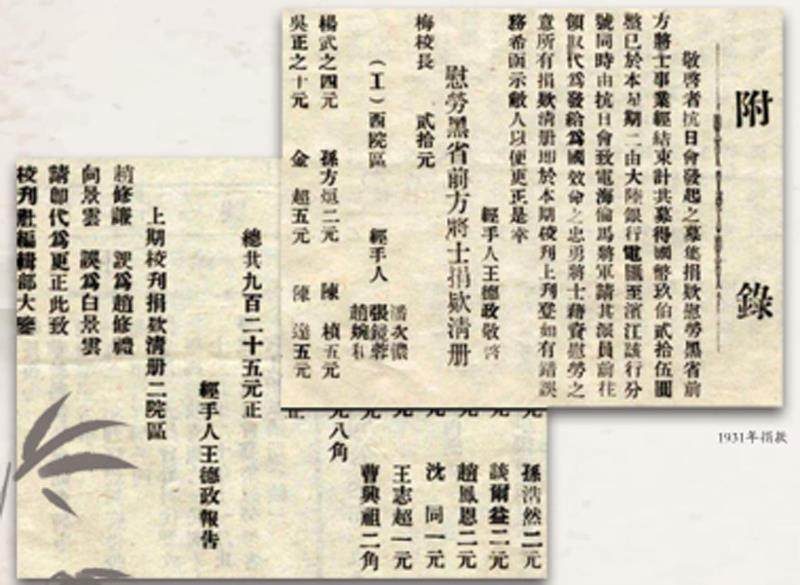 附錄
敬啓者抗日會發起之募集捐欵慰勞黑省前
方將士事業經結束計共募得國幣玖佰貳拾伍圓
整已於本星期二由大陸銀行電匯至濱江該行分
號同時由抗日會致電海倫馬將軍請其派員前往
領取代爲發給爲國效命之忠勇將士藉資慰勞之
意所有捐欵清册即於本期校刊上刊登如有錯誤
務希函示敝人以便更正是幸
經手人王德政敬啓
慰勞黑省前方將士捐欵清册
梅校長 貳拾元
(工)西院區 經手人
潘次儂
張鏡蓉
趙婉和
楊武之四元 孫方烜二元 陳楨五元
吳正之十元 金超五元 陳達五元
孫浩然二元
談爾益二元
趙鳳恩二元
沈同一元
王志超一元
曹興祖二角
元八角
總共九百二十五元正
經手人王德政報告
上期校刊捐欵清册二院區
趙修謙 誤爲趙修禮
向景雲 誤爲白景雲
請卽代爲更正此致
校刊社編輯部大鑒
1931年捐款